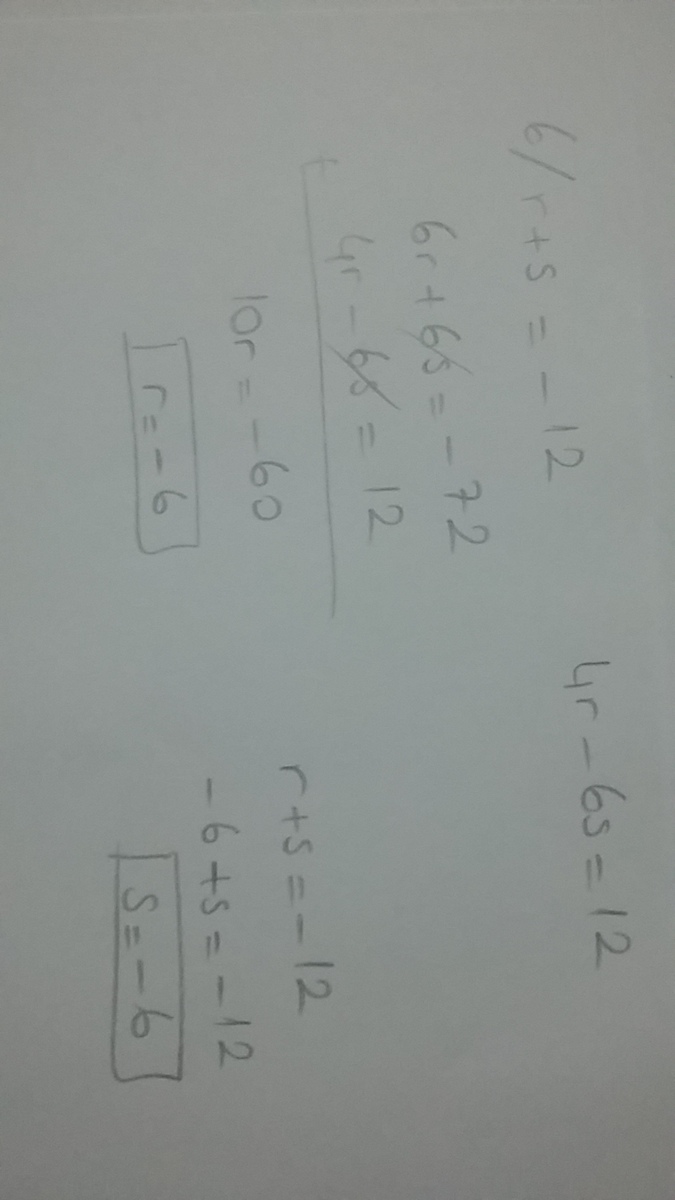 6/ r+s = -12
4r - 6s = 12
6r + 6s = -72
4r - 6s = 12
+
10r = -60
r = -6
r+s = -12
-6+s = -12
s = -6